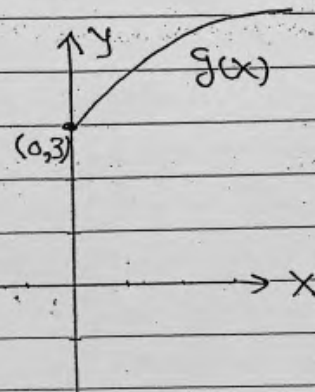 y
g(x)
(0,3)
x